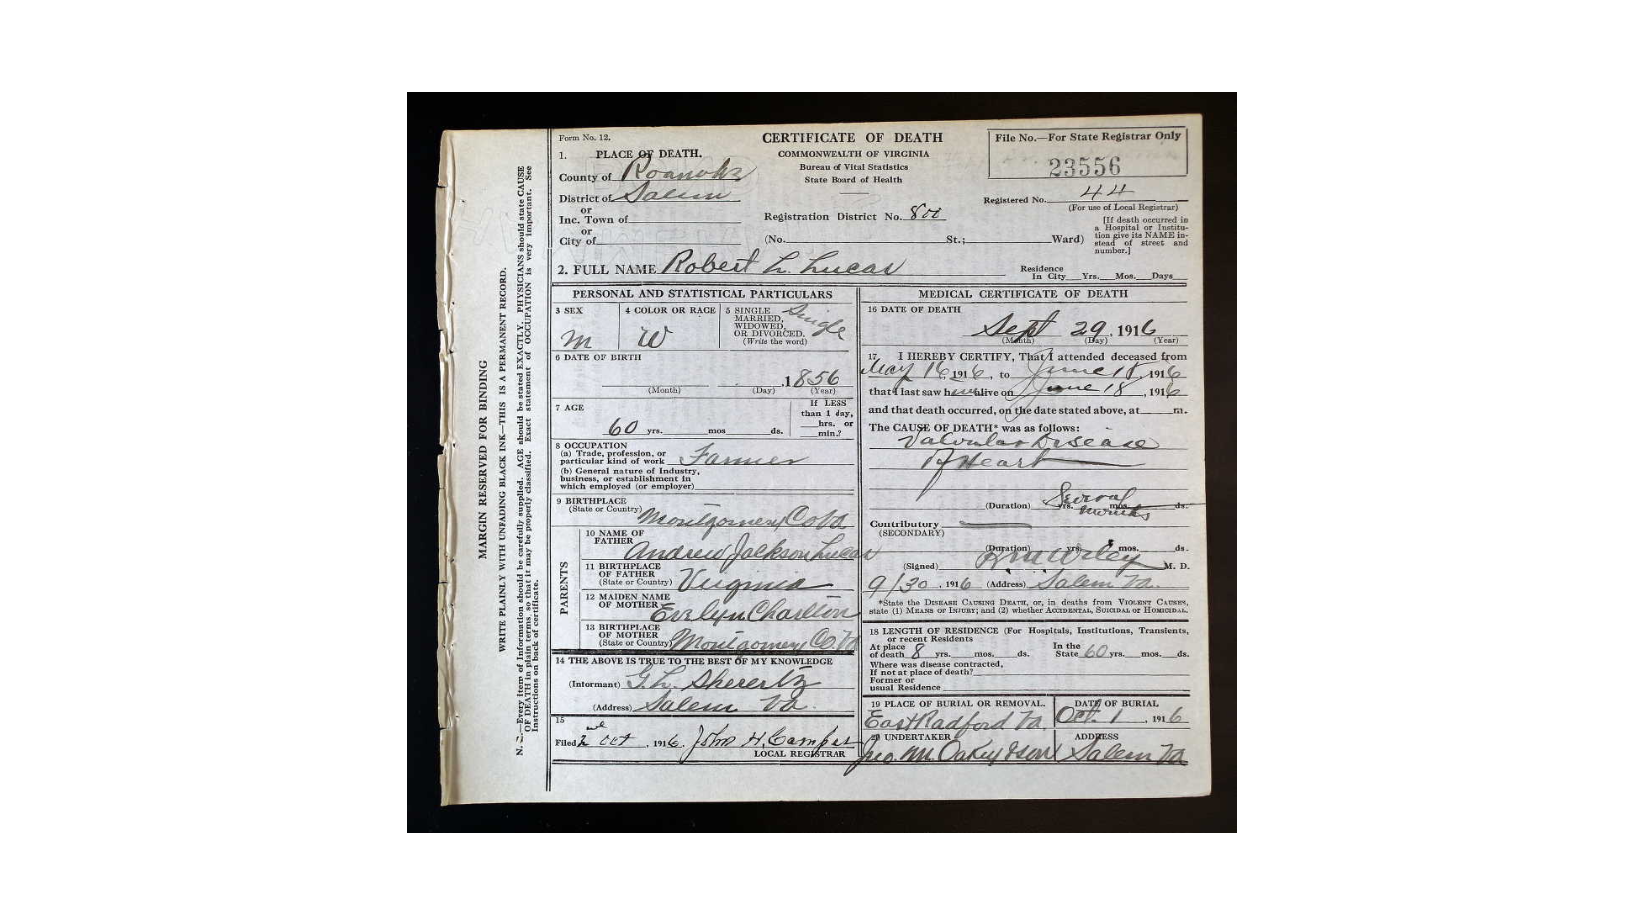 Form No. 12.
CERTIFICATE OF DEATH
COMMONWEALTH OF VIRGINIA
Bureau of Vital Statistics
State Board of Health
File No.—For State Registrar Only
23556
Registered No. 44
(For use of Local Registrar)
1. PLACE OF DEATH.
County of Roanoke
District of Salem
or
Inc. Town of
or
City of
Registration District No. 800
(No. St.; Ward)
[If death occurred in
a Hospital or Institu-
tion give its NAME in-
stead of street and
number.]
2. FULL NAME Robert L. Lucas
Residence
In City Yrs. Mos. Days
PERSONAL AND STATISTICAL PARTICULARS
3 SEX
M
4 COLOR OR RACE
W
5 SINGLE
MARRIED,
WIDOWED,
OR DIVORCED.
(Write the word)
Single
6 DATE OF BIRTH
1856
(Month) (Day) (Year)
7 AGE
60 yrs. mos ds.
If LESS
than 1 day,
hrs. or
min.?
8 OCCUPATION
(a) Trade, profession, or
particular kind of work Farmer
(b) General nature of Industry,
business, or establishment in
which employed (or employer)
9 BIRTHPLACE
(State or Country)
Montgomery Co Va
PARENTS
10 NAME OF
FATHER
Andrew Jackson Lucas
11 BIRTHPLACE
OF FATHER
(State or Country) Virginia
12 MAIDEN NAME
OF MOTHER
Evelyn Charlton
13 BIRTHPLACE
OF MOTHER
(State or Country) Montgomery Co. Va
14 THE ABOVE IS TRUE TO THE BEST OF MY KNOWLEDGE
(Informant) G. L. Sherertz
(Address) Salem Va.
15
Filed 2 Oct, 1916. John H. Camper
LOCAL REGISTRAR
MEDICAL CERTIFICATE OF DEATH
16 DATE OF DEATH
Sept 29, 1916
(Month) (Day) (Year)
17 I HEREBY CERTIFY, That I attended deceased from
May 16, 1916, to June 18, 1916
that I last saw him alive on June 18, 1916
and that death occurred, on the date stated above, at m.
The CAUSE OF DEATH* was as follows:
Valvular Disease
of Heart
(Duration) yrs. mos. ds.
Several months
Contributory
(SECONDARY)
(Duration) yrs. mos. ds.
(Signed) Wiley M. D.
9/30, 1916 (Address) Salem Va.
*State the DISEASE CAUSING DEATH, or, in deaths from VIOLENT CAUSES,
state (1) MEANS OF INJURY; and (2) whether ACCIDENTAL, SUICIDAL or HOMICIDAL.
18 LENGTH OF RESIDENCE (For Hospitals, Institutions, Transients,
or recent Residents
At place
of death 8 yrs. mos. ds.
In the
State 60 yrs. mos. ds.
Where was disease contracted,
If not at place of death?
Former or
usual Residence
19 PLACE OF BURIAL OR REMOVAL.
East Radford Va.
DATE OF BURIAL
Oct. 1, 1916.
20 UNDERTAKER
Jno. M. Oakey & Son
ADDRESS
Salem Va
MARGIN RESERVED FOR BINDING
WRITE PLAINLY WITH UNFADING BLACK INK—THIS IS A PERMANENT RECORD.
N. B.—Every item of Information should be carefully supplied. AGE should be stated EXACTLY. PHYSICIANS should state CAUSE
OF DEATH in plain terms, so that it may be properly classified. Exact statement of OCCUPATION is very important. See
Instructions on back of certificate.